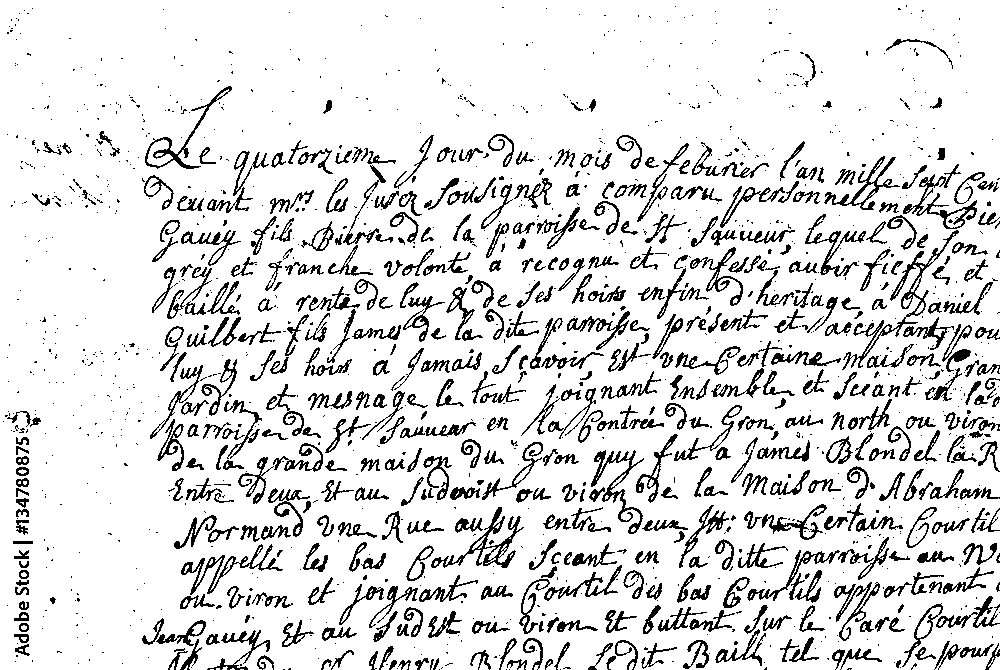 Le quatorzieme Jour du mois de feburier l'an mille sept Cen
deuant mrs les Jurez sousignéz à comparu personnellement Pier
Gauey fils Pierre de la parroisse de St Sauueur, lequel de son
gréy et franche volonté à recognu et confessé, auoir fieffé et
baillé à rente de luy & de ses hoirs enfin d'heritage à Daniel
Guilbert fils James de la dite parroisse, présent et acceptant pou
luy & ses hoirs à Jamais, Scavoir Est vne Certaine maison, Gran
Jardin et mesnage le tout joignant Ensemble et sceant en la d
parroisse de St Sauueur en la Contrée du Gron, au north ou viron
de la grande maison du Gron quy fut à James Blondel la R
Entre deux, Et au Sudvoist ou viron de la Maison d'Abraham
Normand vne Rue aussy entre deux, It: vn Certain Courtil
appellé les bas Courtils Sceant en la ditte parroisse au No
ou viron et joignant au Courtil des bas Courtils apportenant
Jean Gauéy, Et au Sud Est ou viron Et buttant sur le Caré Courtil
Henry Blondel Le dit Bail tel que se
Adobe Stock | #134780875